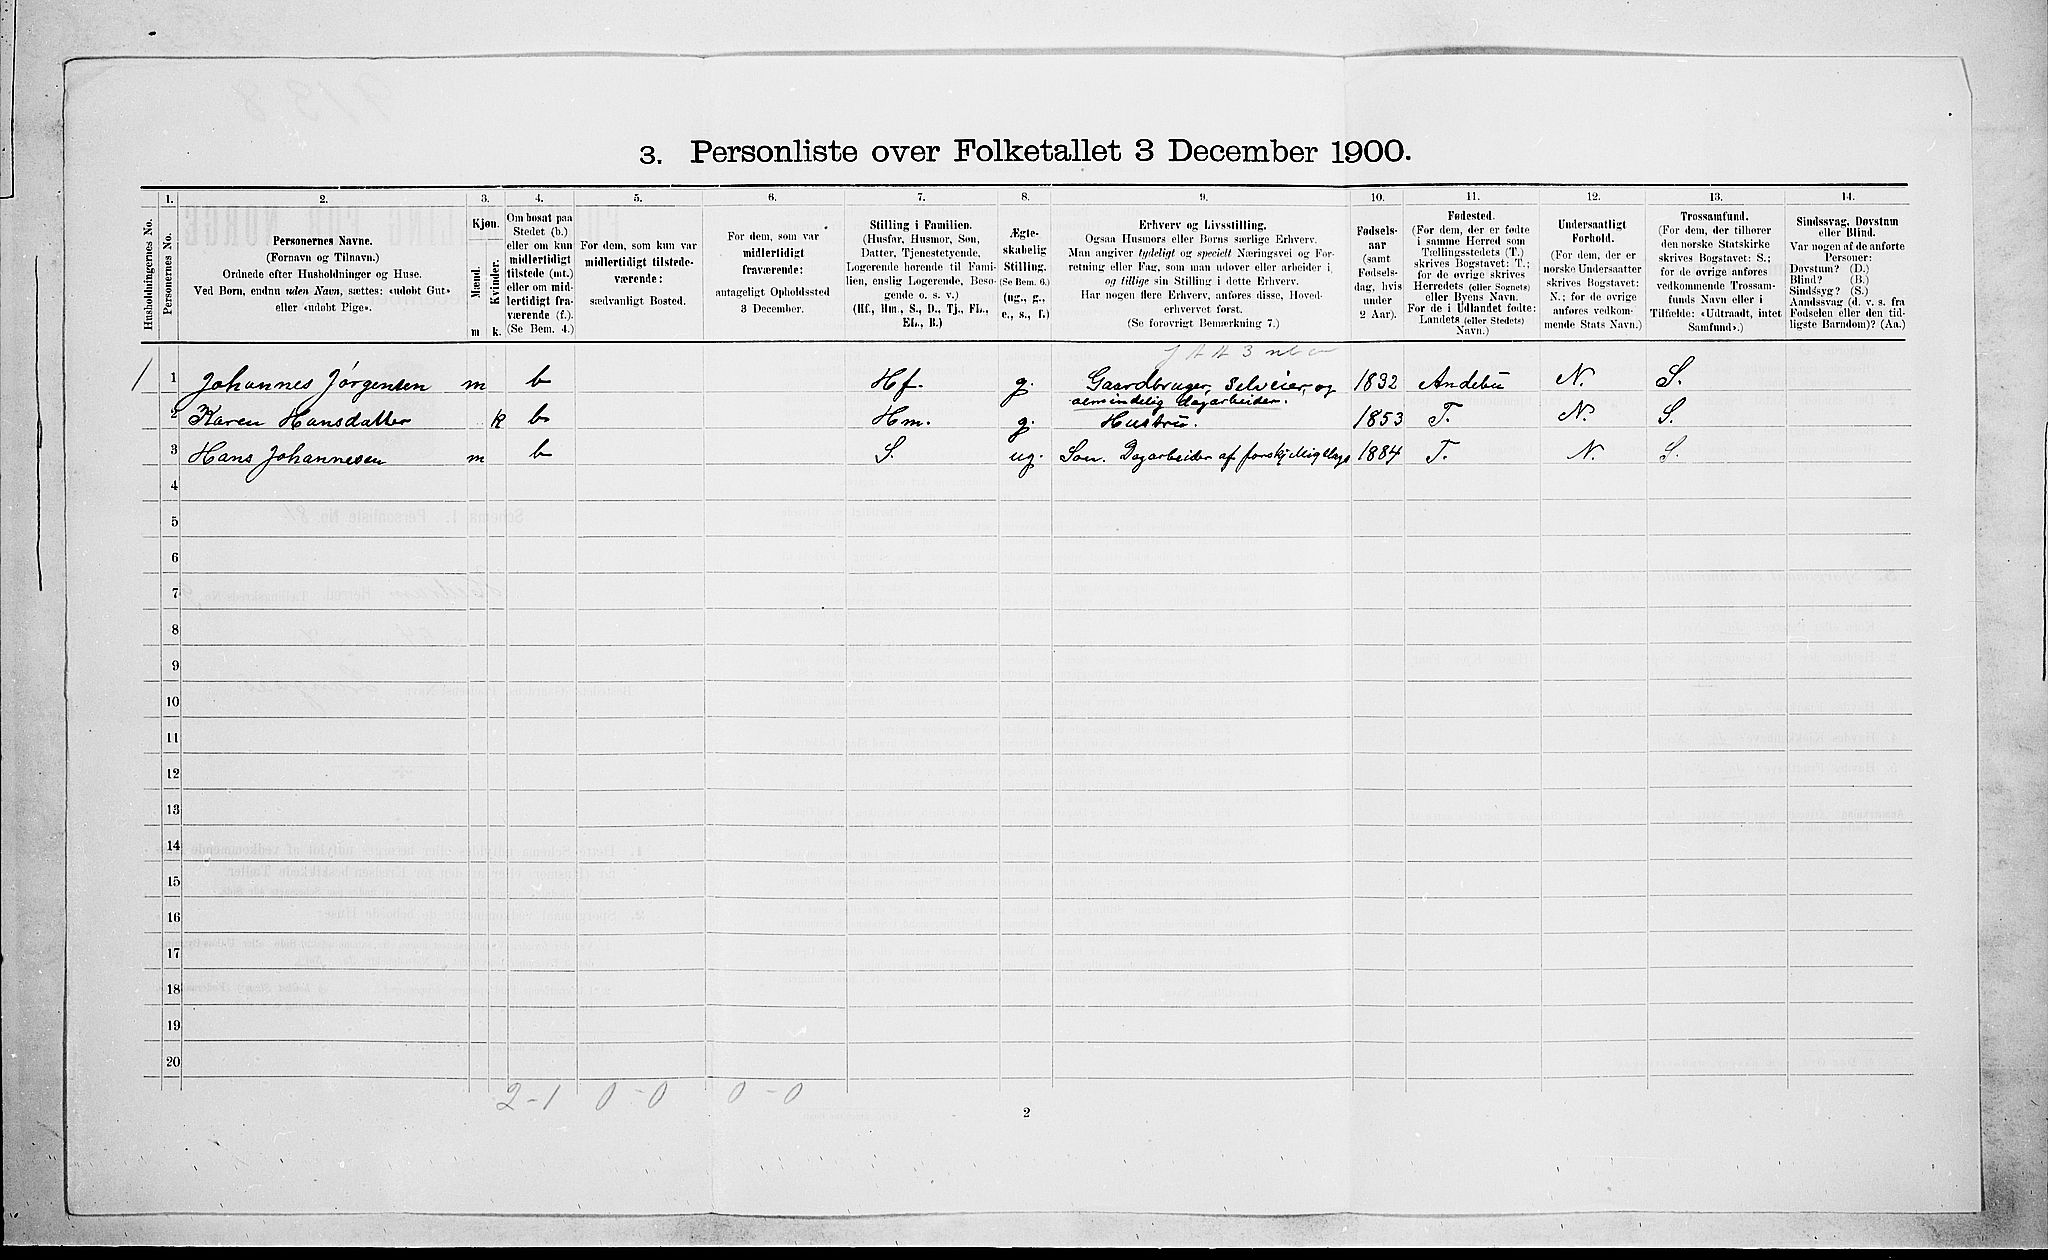 3. Personliste over Folketallet 3 December 1900.
Husholdningernes No.
1.
Personernes No.
2.
Personernes Navne.
(Fornavn og Tilnavn.)
Ordnede efter Husholdninger og Huse.
Ved Børn, endnu uden Navn, sættes: «udøbt Gut»
eller «udøbt Pige».
3.
Kjøn.
Mænd.
Kvinder.
m
k.
4.
Om bosat paa
Stedet (b.)
eller om kun
midlertidigt
tilstede (mt.)
eller om mid-
lertidigt fra-
værende (f.).
(Se Bem. 4.)
5.
For dem, som kun var
midlertidigt tilstede-
værende:
sædvanligt Bosted.
6.
For dem, som var
midlertidigt
fraværende:
antageligt Opholdssted
3 December.
7.
Stilling i Familien.
(Husfar, Husmor, Søn,
Datter, Tjenestetyende,
Logerende hørende til Fami-
lien, enslig Logerende, Besø-
gende o. s. v.)
(Hf., Hm., S., D., Tj., FL.,
EL., B.)
8.
Ægte-
skabelig
Stilling.
(Se Bem. 6.)
(ug., g.,
e., s., f.)
9.
Erhverv og Livsstilling.
Ogsaa Husmors eller Børns særlige Erhverv.
Man angiver tydeligt og specielt Næringsvei og For-
retning eller Fag, som man udøver eller arbeider i,
og tillige sin Stilling i dette Erhverv.
Har nogen flere Erhverv, anføres disse, Hoved-
erhvervet først.
(Se forøvrigt Bemærkning 7.)
10.
Fødsels-
aar
(samt
Fødsels-
dag, hvis
under
2 Aar).
11.
Fødested.
(For dem, der er fødte
i samme Herred som
Tællingsstedets (T.)
skrives Bogstavet: T.;
for de øvrige skrives
Herredets (eller Sognets)
eller Byens Navn.
For de i Udlandet fødte:
Landets (eller Stedets)
Navn.)
12.
Undersaatligt
Forhold.
(For dem, der er
norske Undersaatter
skrives Bogstavet:
N.; for de øvrige
anføres vedkom-
mende Stats Navn.)
13.
Trossamfund.
(For dem, der tilhører
den norske Statskirke
skrives Bogstavet: S.;
for de øvrige anføres
vedkommende Trossam-
funds Navn eller i
Tilfælde: «Udtraadt, intet
Samfund».)
14.
Sindssvag, Døvstum
eller Blind.
Var nogen af de anførte
Personer:
Døvstum? (D.)
Blind? (B.)
Sindssyg? (S.)
Aandssvag (d. v. s. fra
Fødselen eller den tid-
ligste Barndom)? (Aa.)
1 1 Johannes Jørgensen m b Hf. g. Gaardbruger, selveier, og almindelig dagarbeider. 1832 Andebu N. S.
2 Karen Hansdatter k b Hm. g. Hustru. 1853 T. N. S.
3 Hans Johannesen m b S. ug. Søn. Dagarbeider af forskjellig slags 1884 T. N. S.
4
5
6
7
8
9
10
11
12
13
14
15
16
17
18
19
20
2-1 0-0 0-0
2